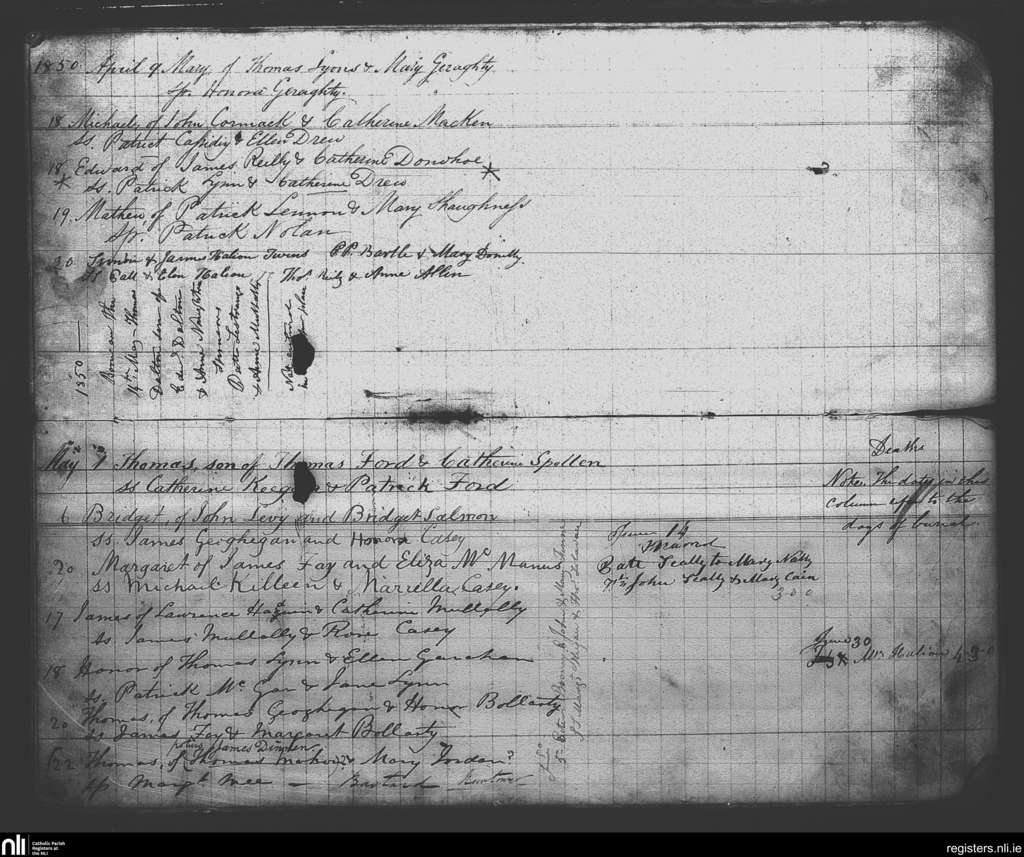 1850 April 9 Mary of Thomas Lyons & Mary Geraghty
Sp. Honora Geraghty.
18 Michael, of John Cormack & Catherine Macken
Ss. Patrick Cassidy & Ellen Drew
18 Edward of James Reilly & Catherine Donohoe
* Ss. Patrick Lynn & Catherine Drew *
19, Mathew, of Patrick Lennon & Mary Shaughness
Sp. Patrick Nolan
20 & James Halion Twins P.P. Bartle & Mary Donilly
Ss Catt & Elen Halion Thos. Reily & Anne Allen
1850
Born on the
14th May Thomas
Dalton son of
Edwd Dalton
& Anne
Sponsors
Peter
& Anne Mullally
Not entered
in place
May 1 Thomas, son of Thomas Ford & Catherine Spollen
ss Catherine Keegan & Patrick Ford
6 Bridget, of John Levy and Bridget Salmon
ss. James Geoghegan and Honora Casey
20 Margaret of James Fay and Eliza Mc. Manus
ss Michael Killeen & Mariella Casey.
17 James of Lawrence & Catherine Mullally
ss James Mullally & Rose Casey
18 Honor of Thomas Lynn & Ellen Garahan
Ss. Patrick Mc. Gar & Jane Lynn
20 Thomas, of Thomas Geoghegan & Honor Bollarty
ss James Fay & Margaret Bollarty
potius James Dinneen
22 Thomas, of (Thomas Mahon)? & Mary Jordan?
Sp Margt. Mee — Bastard
Deaths
Note. The dates in this
column are to the
days of burial.
June 14
Married
Batt Scally to Mary Nally
7th John Scally & Mary Cain
3 0 0
June 30
Mrs. Halion 4-3-0